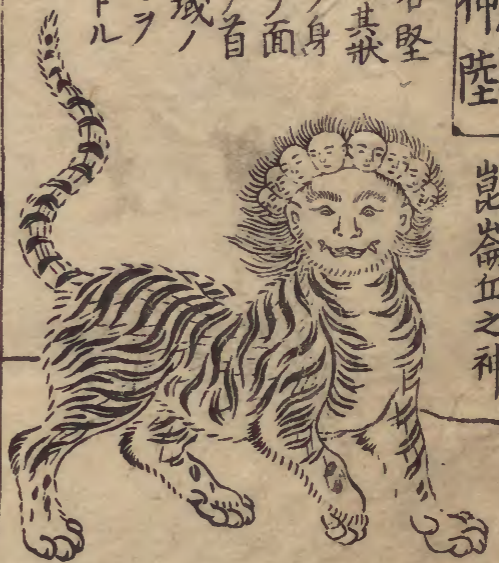 神陸
崑崙丘之神
名堅
其狀
ノ身
ノ面
ノ首
域ノ
ヲ
トル